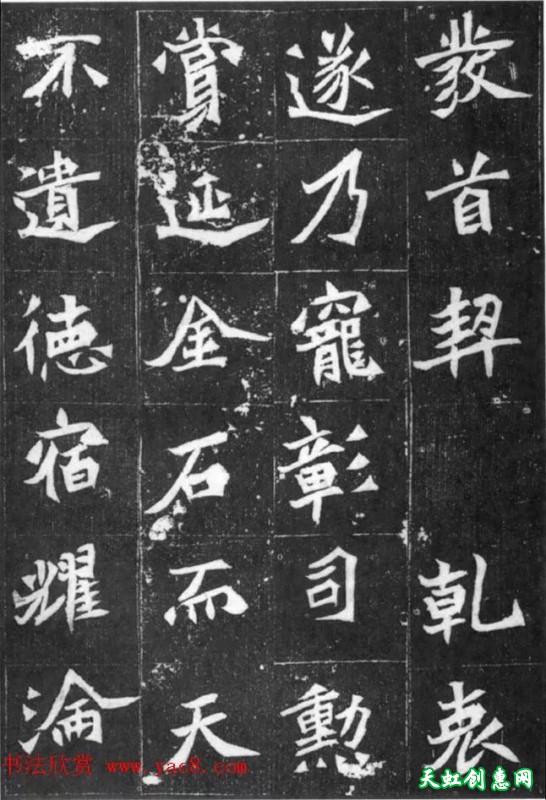 發首契　乾衷
遂乃寵彰司勳
賞延金石而天
不遺徳宿耀淪
书法欣赏 www.yac8.com
天虹创惠网